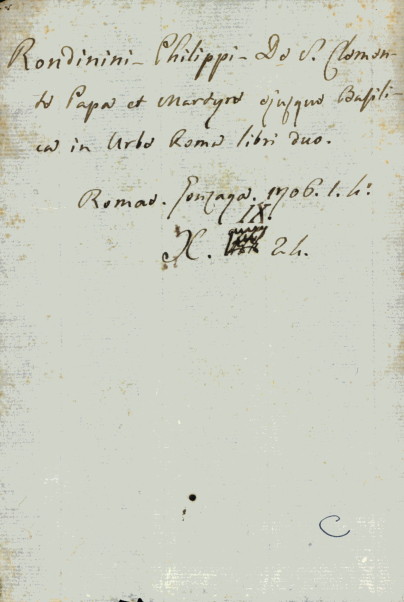 Rondinini - Philippi - De S. Clemen-
te Papa et Martyre ejusque Basili-
ca in Urbe Roma libri duo.
Romae. Gonzaga. 1706. 1. 4º
IX
X. 24.
C